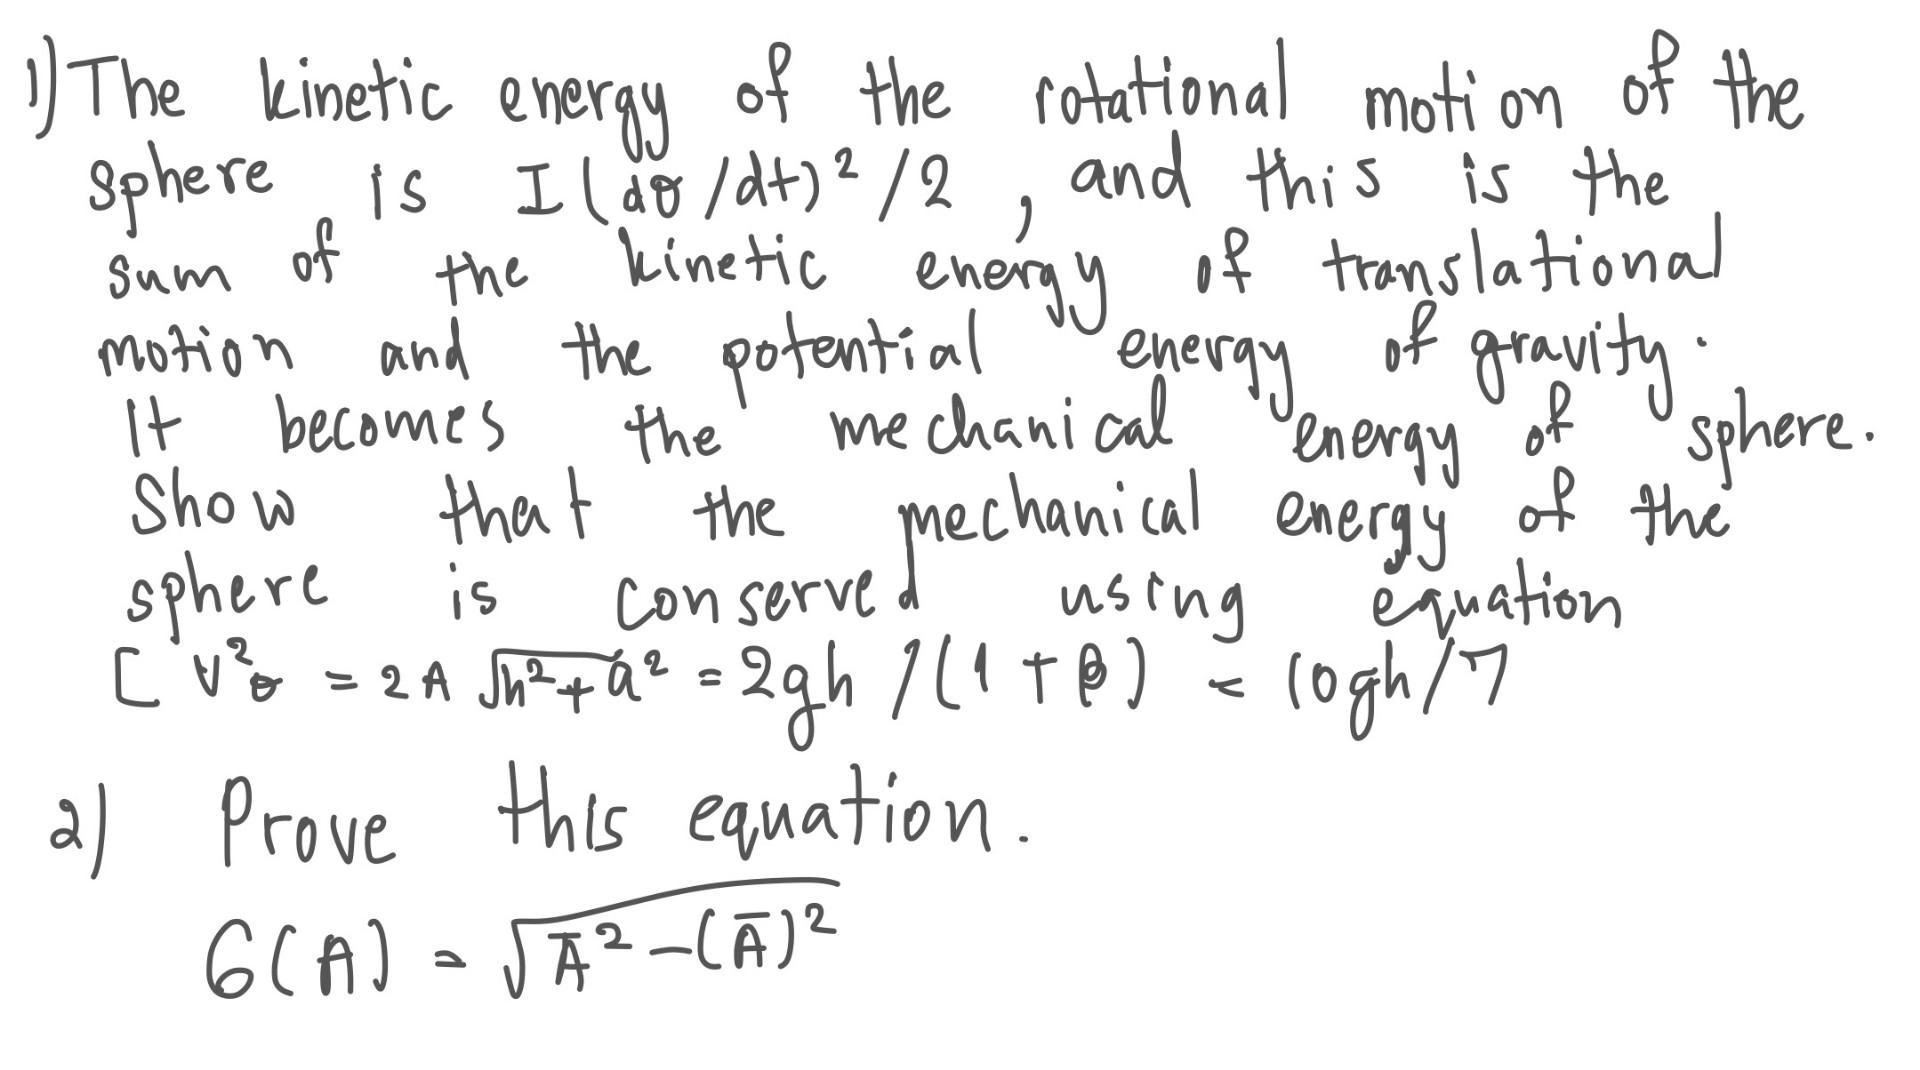 1) The kinetic energy of the rotational motion of the
sphere is I(dθ/dt)²/2, and this is the
sum of the kinetic energy of translational
motion and the potential energy of gravity.
It becomes the mechanical energy of sphere.
Show that the mechanical energy of the
sphere is conserved using equation
[ V²θ = 2A √h²+a² = 2gh /(1+β) = 10gh/7
2) Prove this equation.
6(A) = √Ā² - (Ā)²